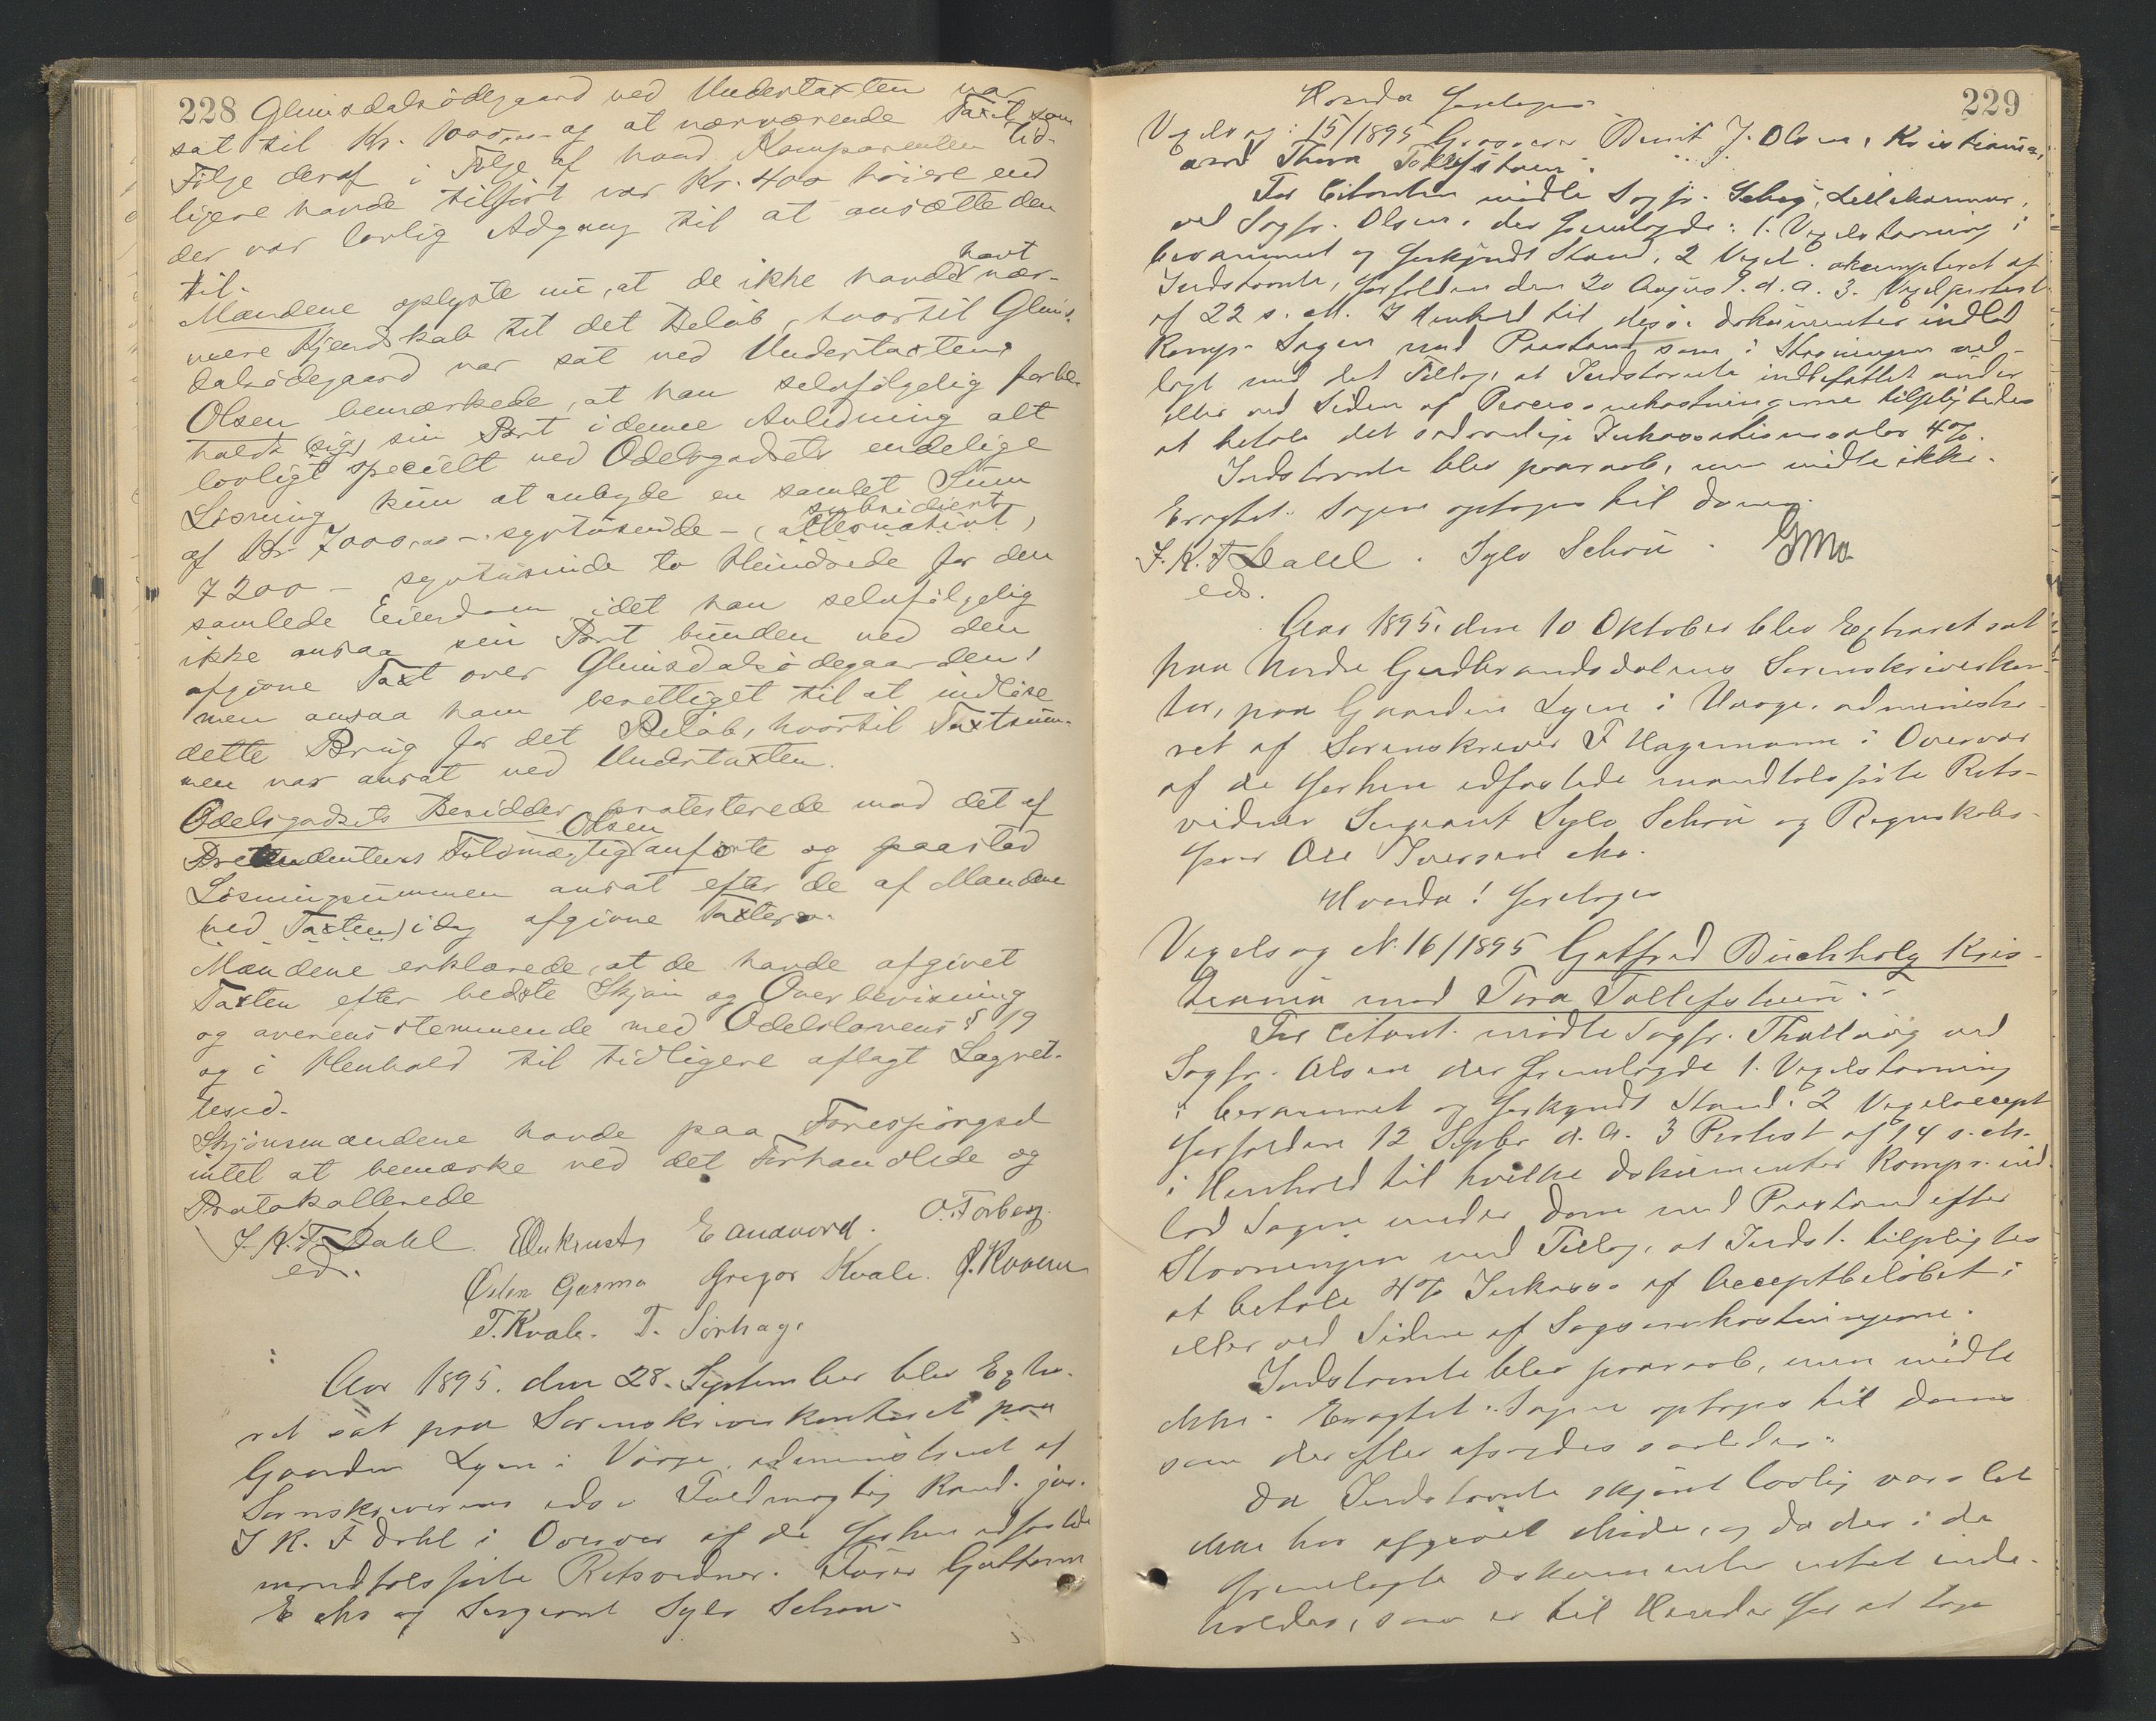 228 Glimsdalsödegaard ved Undertaxten var
sat til Kr. 1000,00 og at nærværende Taxt som
Fölge deraf i Fölge af hvad Komparenten tid-
ligere havde tilfört var Kr. 400 höiere end
der var lovlig Adgang til at ansætte den
til.
Mændene oplyste nu, at de ikke havde havt nær-
mere Kjendskab til det Belöb, hvortil Glims-
dalsödegaard var sat ved Undertaxten.
Olsen bemærkede, at han selvfölgelig forbe-
holdt (sig) sin Part i denne Anledning alt
lovligt specielt ved Odelsgodsets endelige
Lösning kun at anbyde en samlet Sum
af Kr 7000,00 - syvtusinde - (alternativt) subsidiert
7200 - syvtusinde to Hundrede for den
samlede Eiendom idet han selvfölgelig
ikke ansaa sin Part bunden ved den
afgivne Taxt over Glimsdalsödegaarden,
men ansaa ham berettiget til at indlöse
dette Brug for det Belöb, hvortil Taxtsum-
men var ansat ved Undertaxten.
Odelsgodsets Besidder protesterede mod det af
Prætendentens Fuldmægtig Olsen anförte og paastod
Lösningsummen ansat efter de af Mændene
(ved Taxten) idag afgivne Taxter.
Mændene erklærede, at de havde afgivet
Taxten efter bedste Skjön og Overbevisning
og overensstemmende med Odelslovens § 19
og i Henhold til tidligere aflagt Lagret-
tesed.
Skjönsmændene havde paa Forespörgsel
intet at bemærke ved det Forhandlede og
Protokollerede
J. K. F. Dahl. E Sandvord. O. Forberg.
eds.
Östen Gusmo Gregor Kvale.
T. Kvale. T. Sörhage
Aar 1895. den 28. September blev Extra-
ret sat paa Sorenskriverkontoret paa
Gaarden Lyen i Vaage, administreret af
Sorenskriverens eds. Fuldmægtig Kand. jur.
J K. F Dahl i Overvær af de forhen edfæstede
mandtalsförte Retsvidner. Guttorm
E og Sergeant Sylv. Schou.
229
Hvorda foretoges
Vexelsag: 15/1895 Grosserer Bernt J. Olsen, Kristiania,
mod Thora Tollefstuen.
For Citanten mödte Sagf. Lillehammer,
ved Sagf. Olsen, der fremlagde: 1. Vexelstævning i
beramment og forkyndt Stand, 2 Vexel. akcepteret af
Indstævnte, forfalden den 20 August d. A. 3. Vexelprotest
af 22 s. M. I Henhold til disse dokumenter indlod
Komp. Sagen med Paastand som i Stævningen ned-
lagt med det Tillæg, at Indstævnte indbefattet under
eller ved Siden af Procesomkostningerne tilpligtedes
at betale det sedvanlige Inkassationssalær 4%.
Indstævnte blev paaraabt, men mödte ikke.
Eragtet: Sagen optages til dom.
J. K. F Dahl. Sylv Schou.
eds.
Aar 1895. den 10 Oktober blev Extraret sat
paa Nordre Gudbrandsdalens Sorenskriverkon-
tor, paa Gaarden Lyen i Vaage, administre-
ret af Sorenskriver F Hagemann i Overvær
af de forhen edfæstede mandtalsförte Rets-
vidner Sergeant Sylv Schou og Regnskabs-
förer Ole Iversen
Hvorda! foretoges
Vexelsag N. 16/1895 Gotfred Buchholz Kris-
tiania mod Tora Tollefstuen.
For Citant. mödte Sagfr. Thallaug ved
Sagfr. Olsen der fremlagde 1. Vexelstævning
i beramment og forkyndt Stand. 2 Vexelaccept
forfalden 12 Septbr d. A. 3 Protest af 14 s. M.
i Henhold til hvilke dokumenter Komp. ind-
lod Sagen under dom med Paastand efter
Stævningen med Tillæg, at Indst. tilpligtes
at betale 4% Inkasso af Acceptbelöbet i
eller ved Siden af Sagsomkostningerne.
Indstævnte blev paaraabt, men mödte
ikke. Eragtet: Sagen optages til doms
som derefter afsagdes saaledes:
Da Indstævnte skjönt lovlig varslet
ikke har afgivet Möde, og da der i de
fremlagte dokumenter intet inde-
holdes, som er til Hinder for at tage